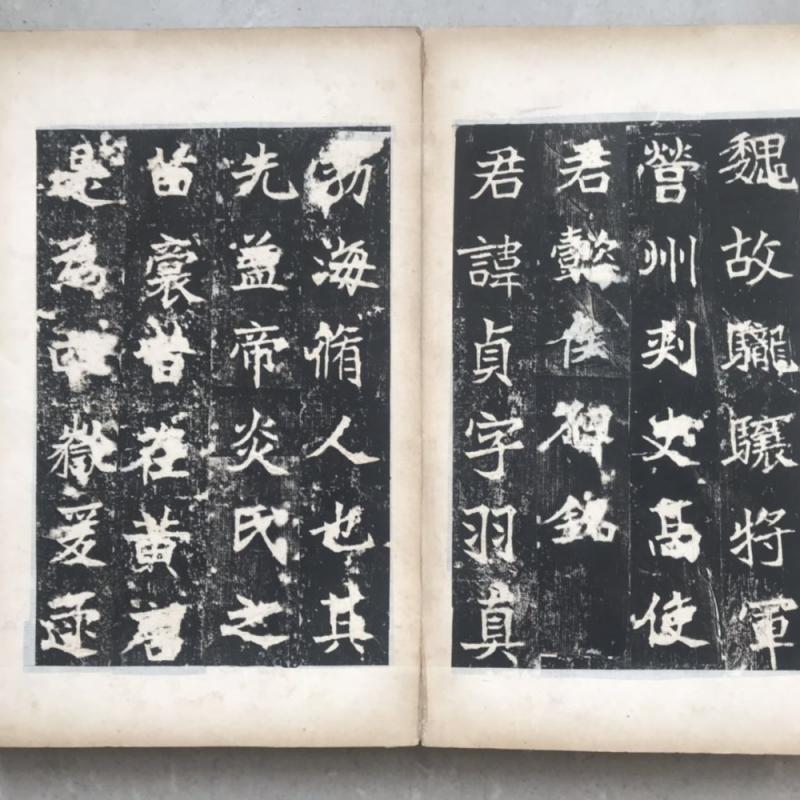 魏故𩧪驤將軍
營州刺史高使
君懿侯碑銘
君諱貞字羽真
勃海脩人也其
先蓋帝炎氏之
苗裔昔在黃唐
是為四嶽爰逮